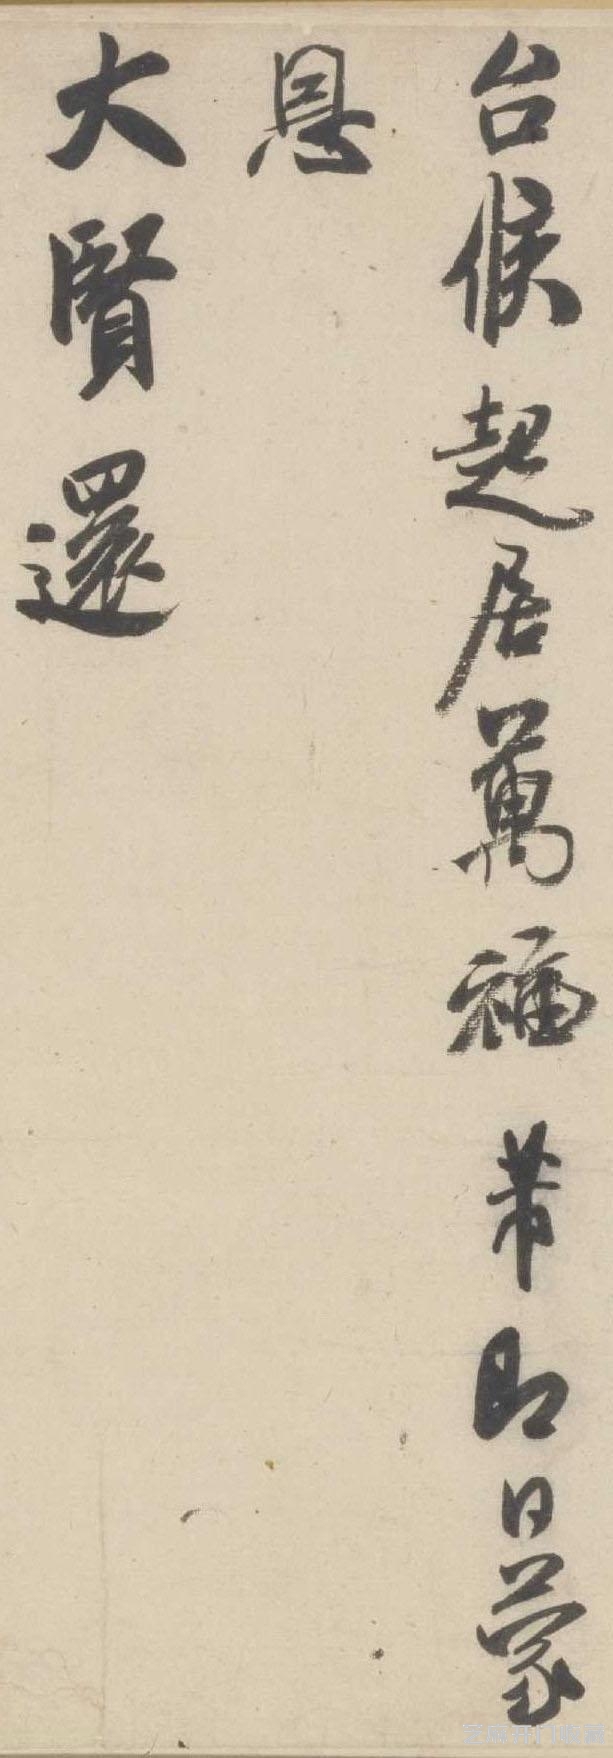 台候起居萬福芾即日蒙
恩
大賢還